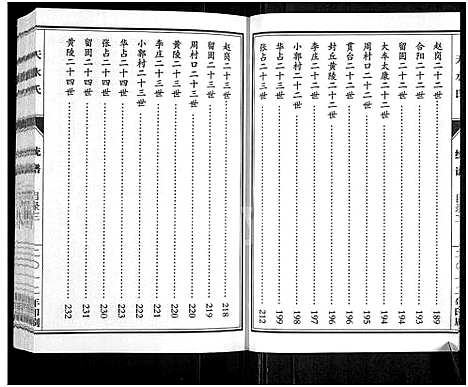 赵岗二十二世 189
合阳二十二世 193
留固二十二世 194
大车太康二十二世 194
周村口二十二世 194
贯台二十二世 196
封丘黄陵二十二世 197
李庄二十二世 198
小郭村二十二世 198
华占二十二世 199
张占二十二世 212
赵岗二十三世 218
留固二十三世 219
周村口二十三世 220
黄陵二十三世 220
李庄二十三世 221
小郭村二十三世 222
华占二十四世 224
张占二十四世 230
留固二十四世 231
黄陵二十四世 232
天水氏
统谱
目录三
二〇一二年印刷